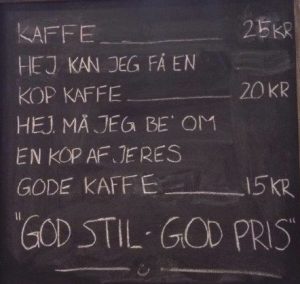 KAFFE 25 KR
HEJ KAN JEG FÅ EN
KOP KAFFE 20 KR
HEJ. MÅ JEG BE' OM
EN KOP AF JERES
GODE KAFFE 15 KR
"GOD STIL - GOD PRIS"